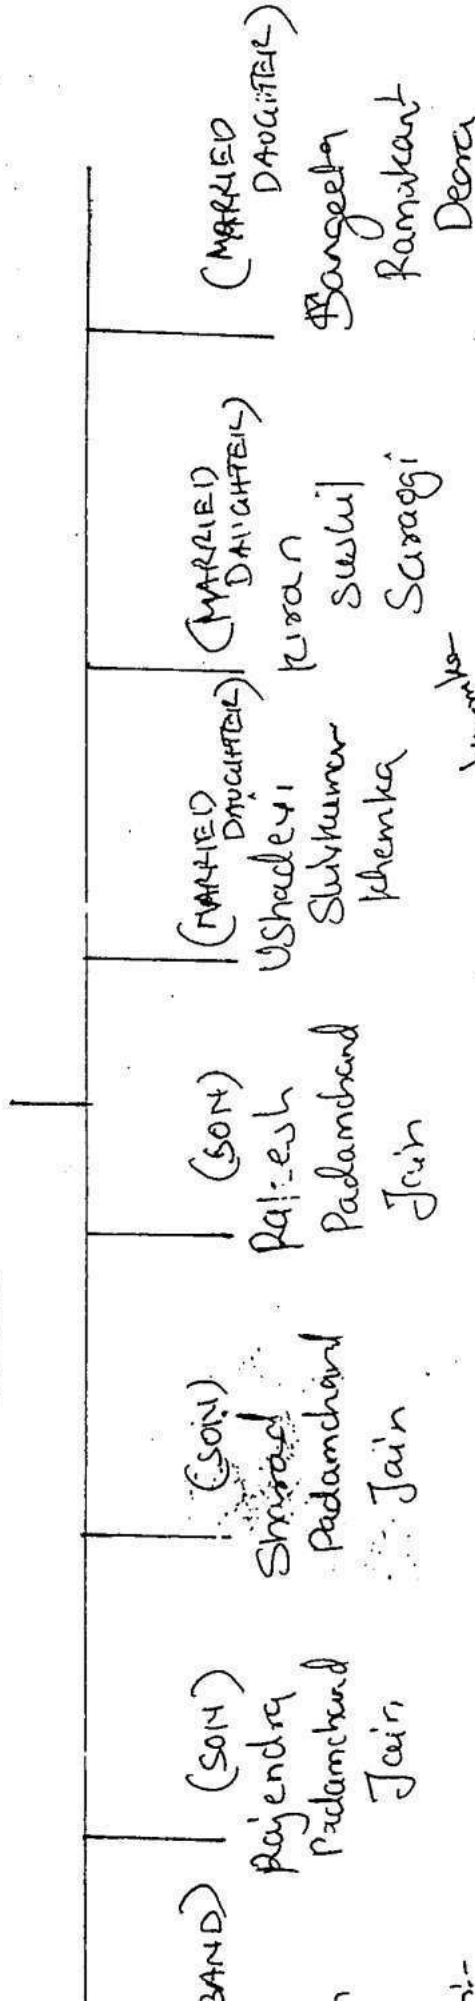 BAND)
(SON)
Rajendra
Padamchand
Jain
(SON)
Sharad
Padamchand
Jain
(SON)
Padamchand
Jain
(MARRIED
DAUGHTER)
Ushadevi
Shivkumar
Khemka
(MARRIED
DAUGHTER)
Kiran
Sushil
Saraogi
(MARRIED
DAUGHTER)
Sangeeta
Ramakant
Deora